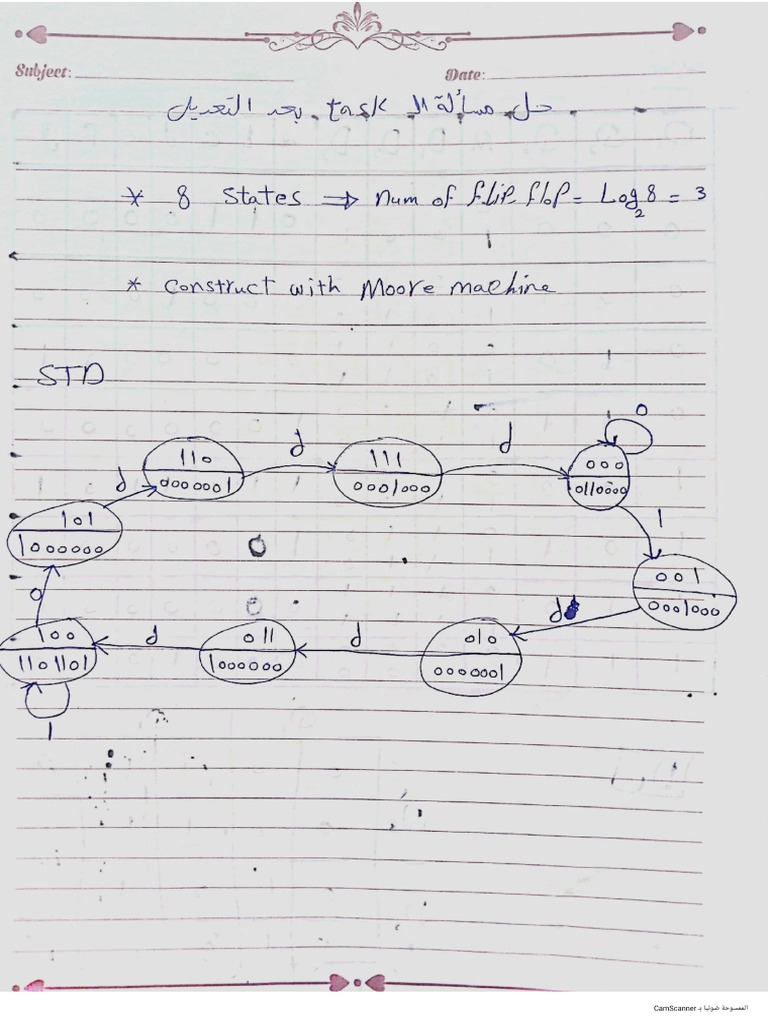 Subject:
Date:
حل مسألة الـ task بعد التعديل
* 8 states ⇒ num of flip flop = Log₂8 = 3
* construct with Moore machine
STD
0
d
d
110
0000001
111
0001000
000
0110000
d
101
1000000
1
001
0001000
0
d
d
d
100
1101101
011
1000000
010
0000001
1
الممسوحة ضوئيا بـ CamScanner